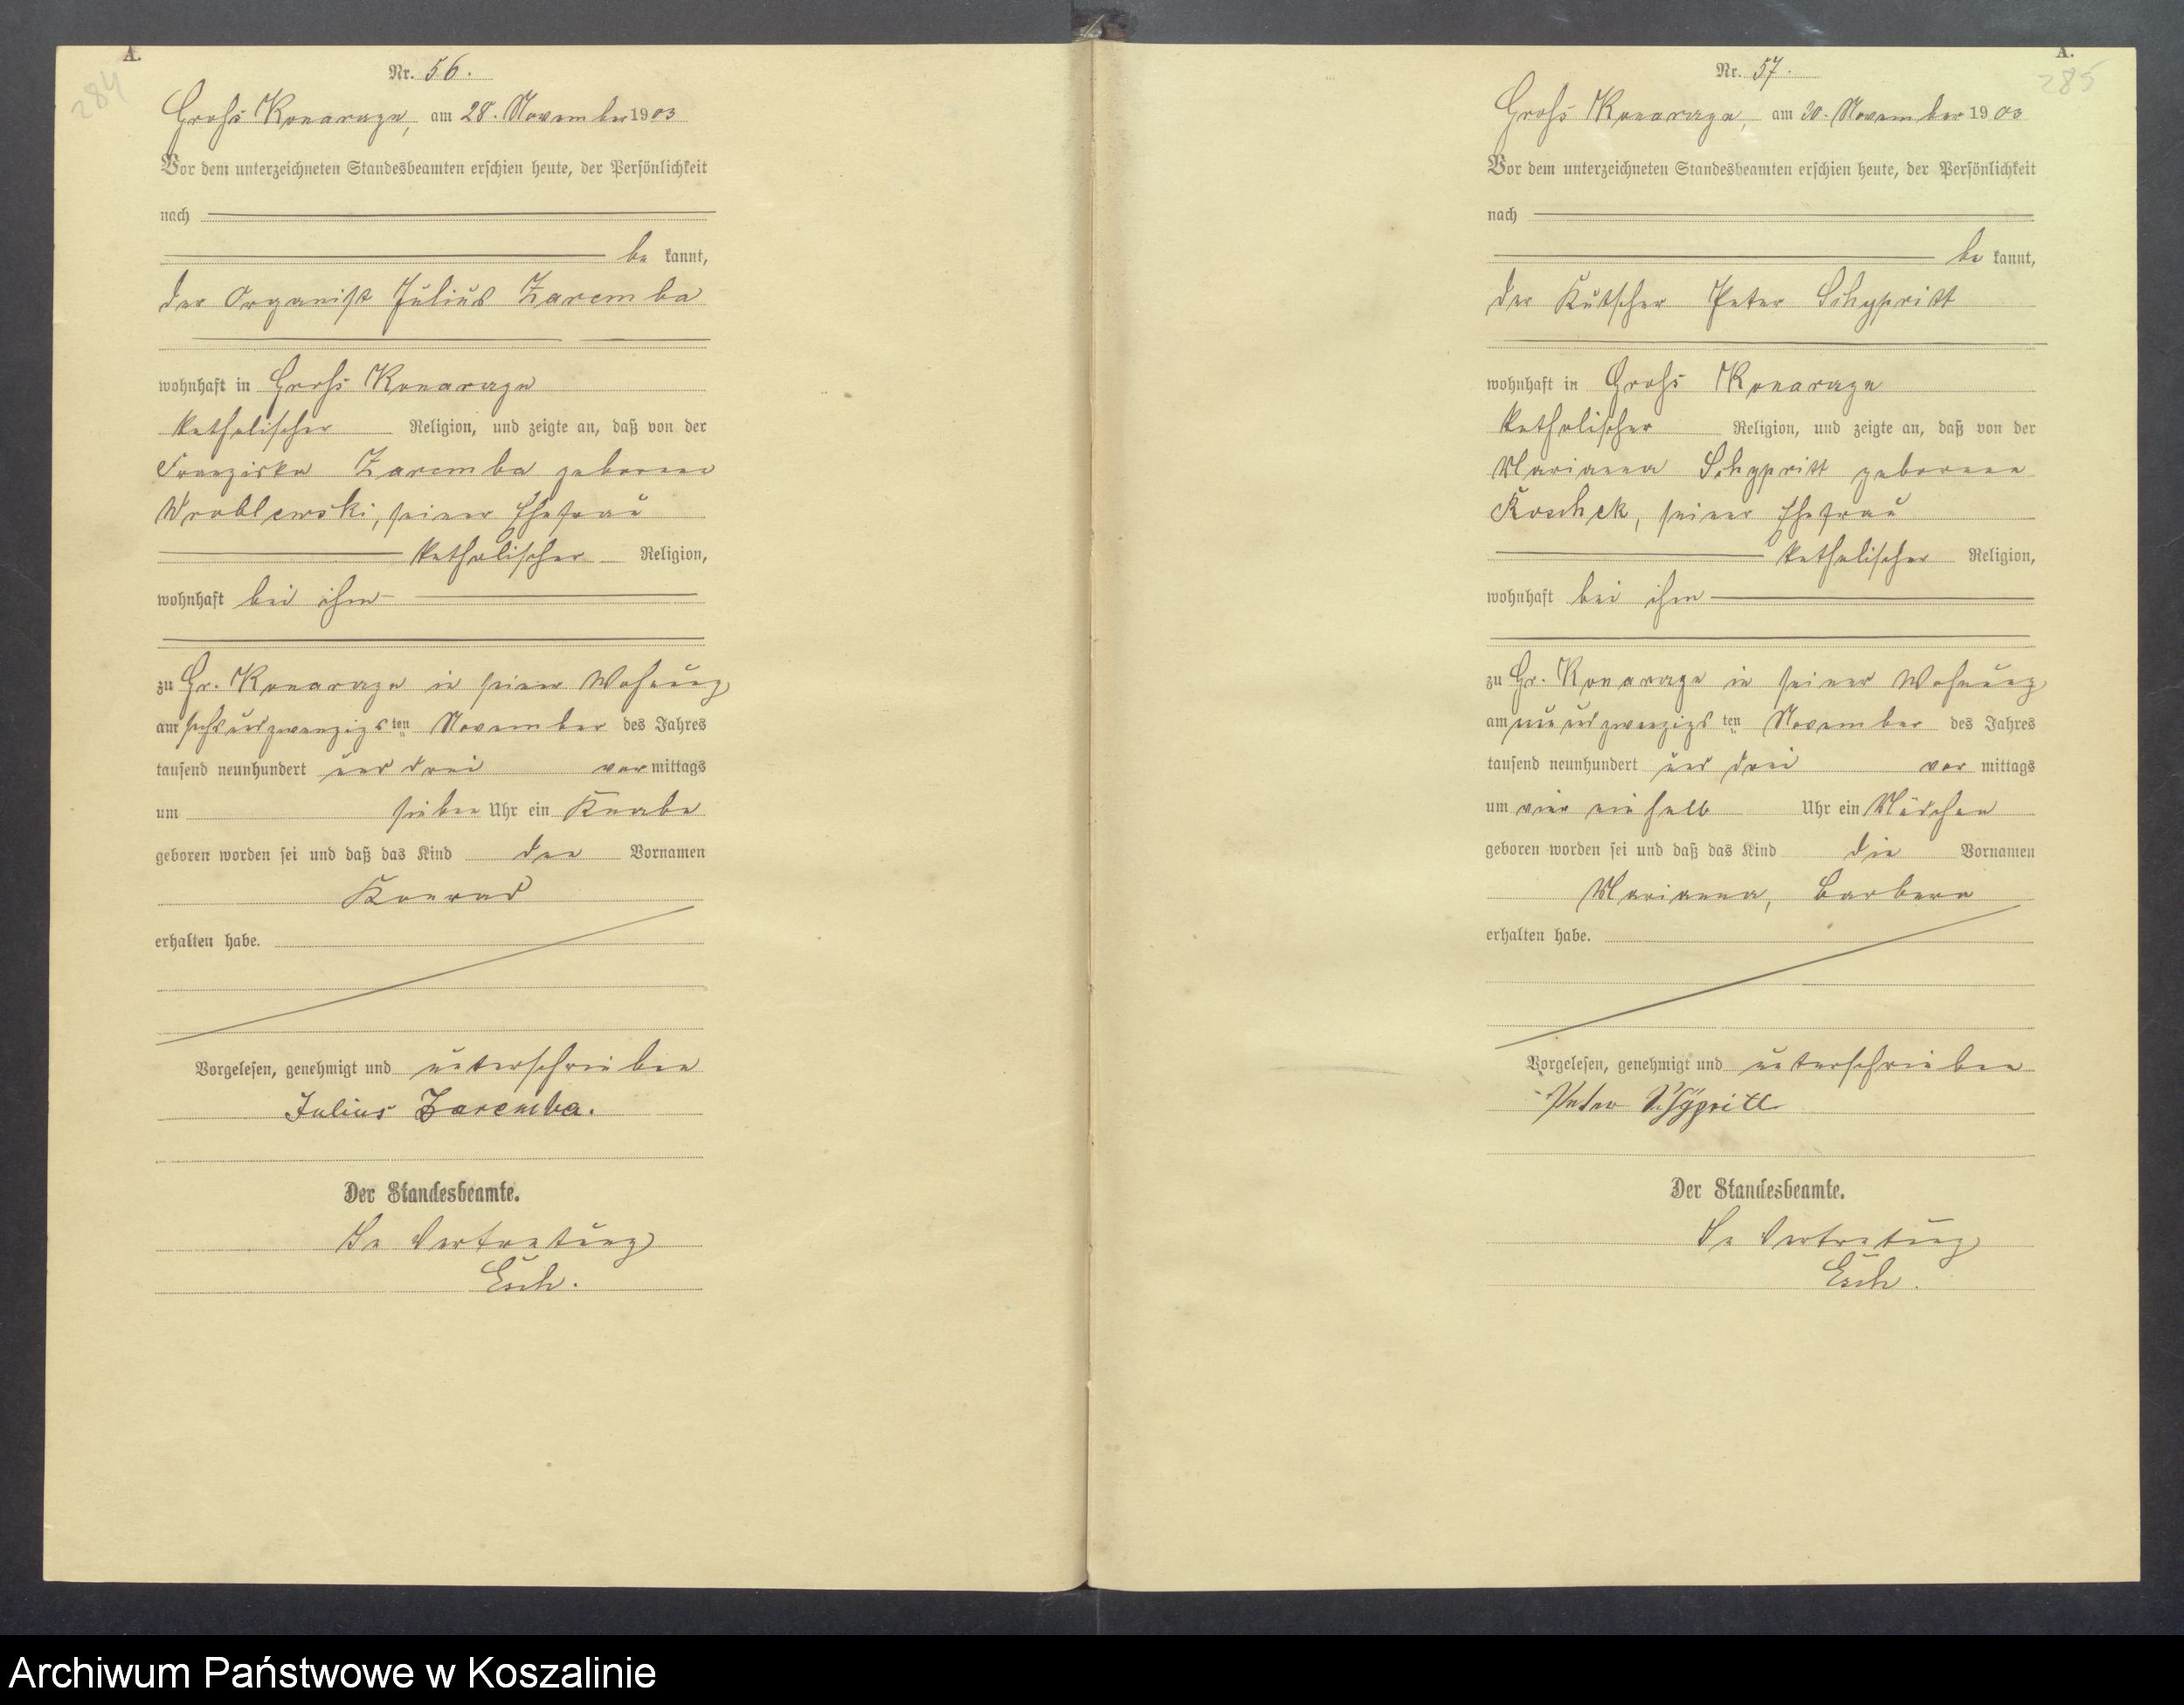 A.
284
Nr. 56.
Groß Konarzyn, am 28. November 1903
Vor dem unterzeichneten Standesbeamten erschien heute, der Persönlichkeit
nach
be kannt,
der Organist Julius Zaremba
wohnhaft in Groß Konarzyn
katholischer Religion, und zeigte an, daß von der
Franziska Zaremba geborene
Wroblewski, seiner Ehefrau
katholischer Religion,
wohnhaft bei ihm
zu Gr. Konarzyn in seiner Wohnung
am sechsundzwanzigsten November des Jahres
tausend neunhundert und drei vor mittags
um sieben Uhr ein Knabe
geboren worden sei und daß das Kind den Vornamen
Konrad
erhalten habe.
Vorgelesen, genehmigt und unterschrieben
Julius Zaremba.
Der Standesbeamte.
In Vertretung
Esch.
A.
285
Nr. 57.
Groß Konarzyn, am November 1903
Vor dem unterzeichneten Standesbeamten erschien heute, der Persönlichkeit
nach
be kannt,
der Kutscher Peter Schypritt
wohnhaft in Groß Konarzyn
katholischer Religion, und zeigte an, daß von der
Marianna Schypritt geborene
Koschek, seiner Ehefrau
katholischer Religion,
wohnhaft bei ihm
zu Gr. Konarzyn in seiner Wohnung
am ten November des Jahres
tausend neunhundert und drei vor mittags
um vier einhalb Uhr ein Mädchen
geboren worden sei und daß das Kind die Vornamen
Marianna, Barbara
erhalten habe.
Vorgelesen, genehmigt und unterschrieben
Peter
Der Standesbeamte.
In Vertretung
Esch.
Archiwum Państwowe w Koszalinie